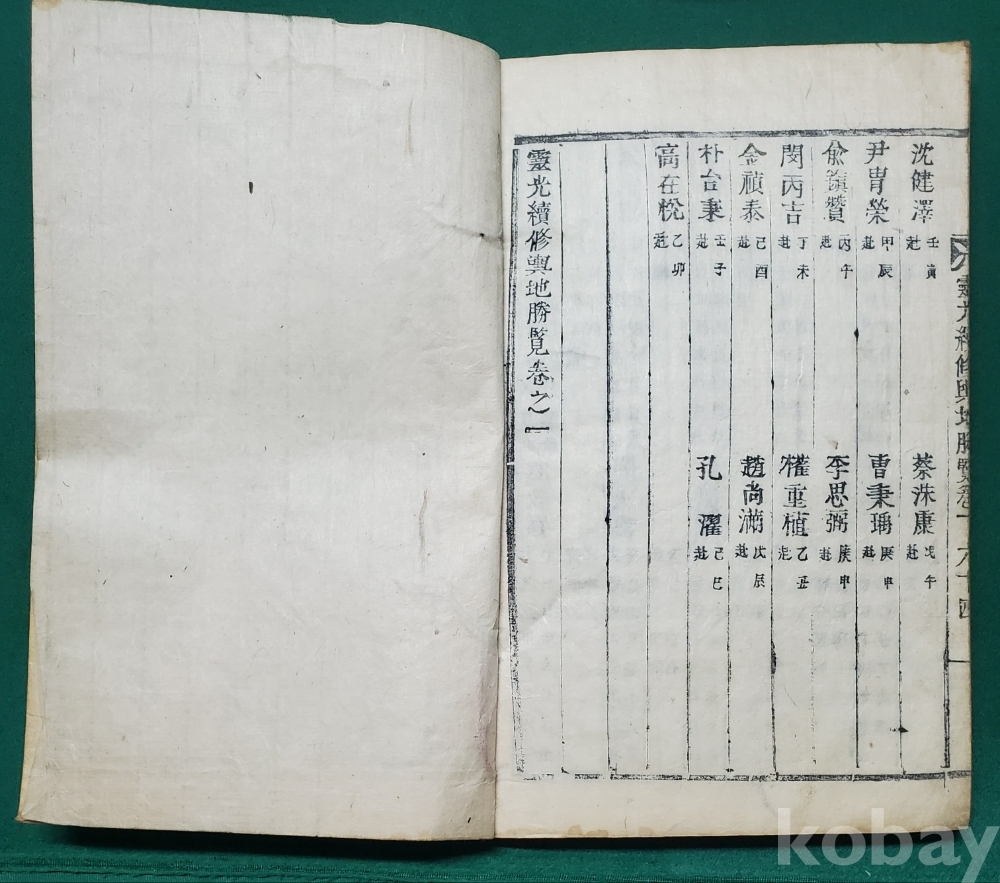 靈光續修輿地勝覽卷一 六十四
沈健澤 壬寅赴 蔡洙康 戊午赴
尹胄榮 甲辰赴 曹秉瑀 庚申赴
兪鎭贊 丙午赴 李思弼 庚申赴
閔丙吉 丁未赴 權重植 乙丑赴
金禎泰 己酉赴 趙尙滿 戊辰赴
朴台秉 壬子赴 孔濯 己巳赴
高在悅 乙卯赴
靈光續修輿地勝覽卷之一
kobay